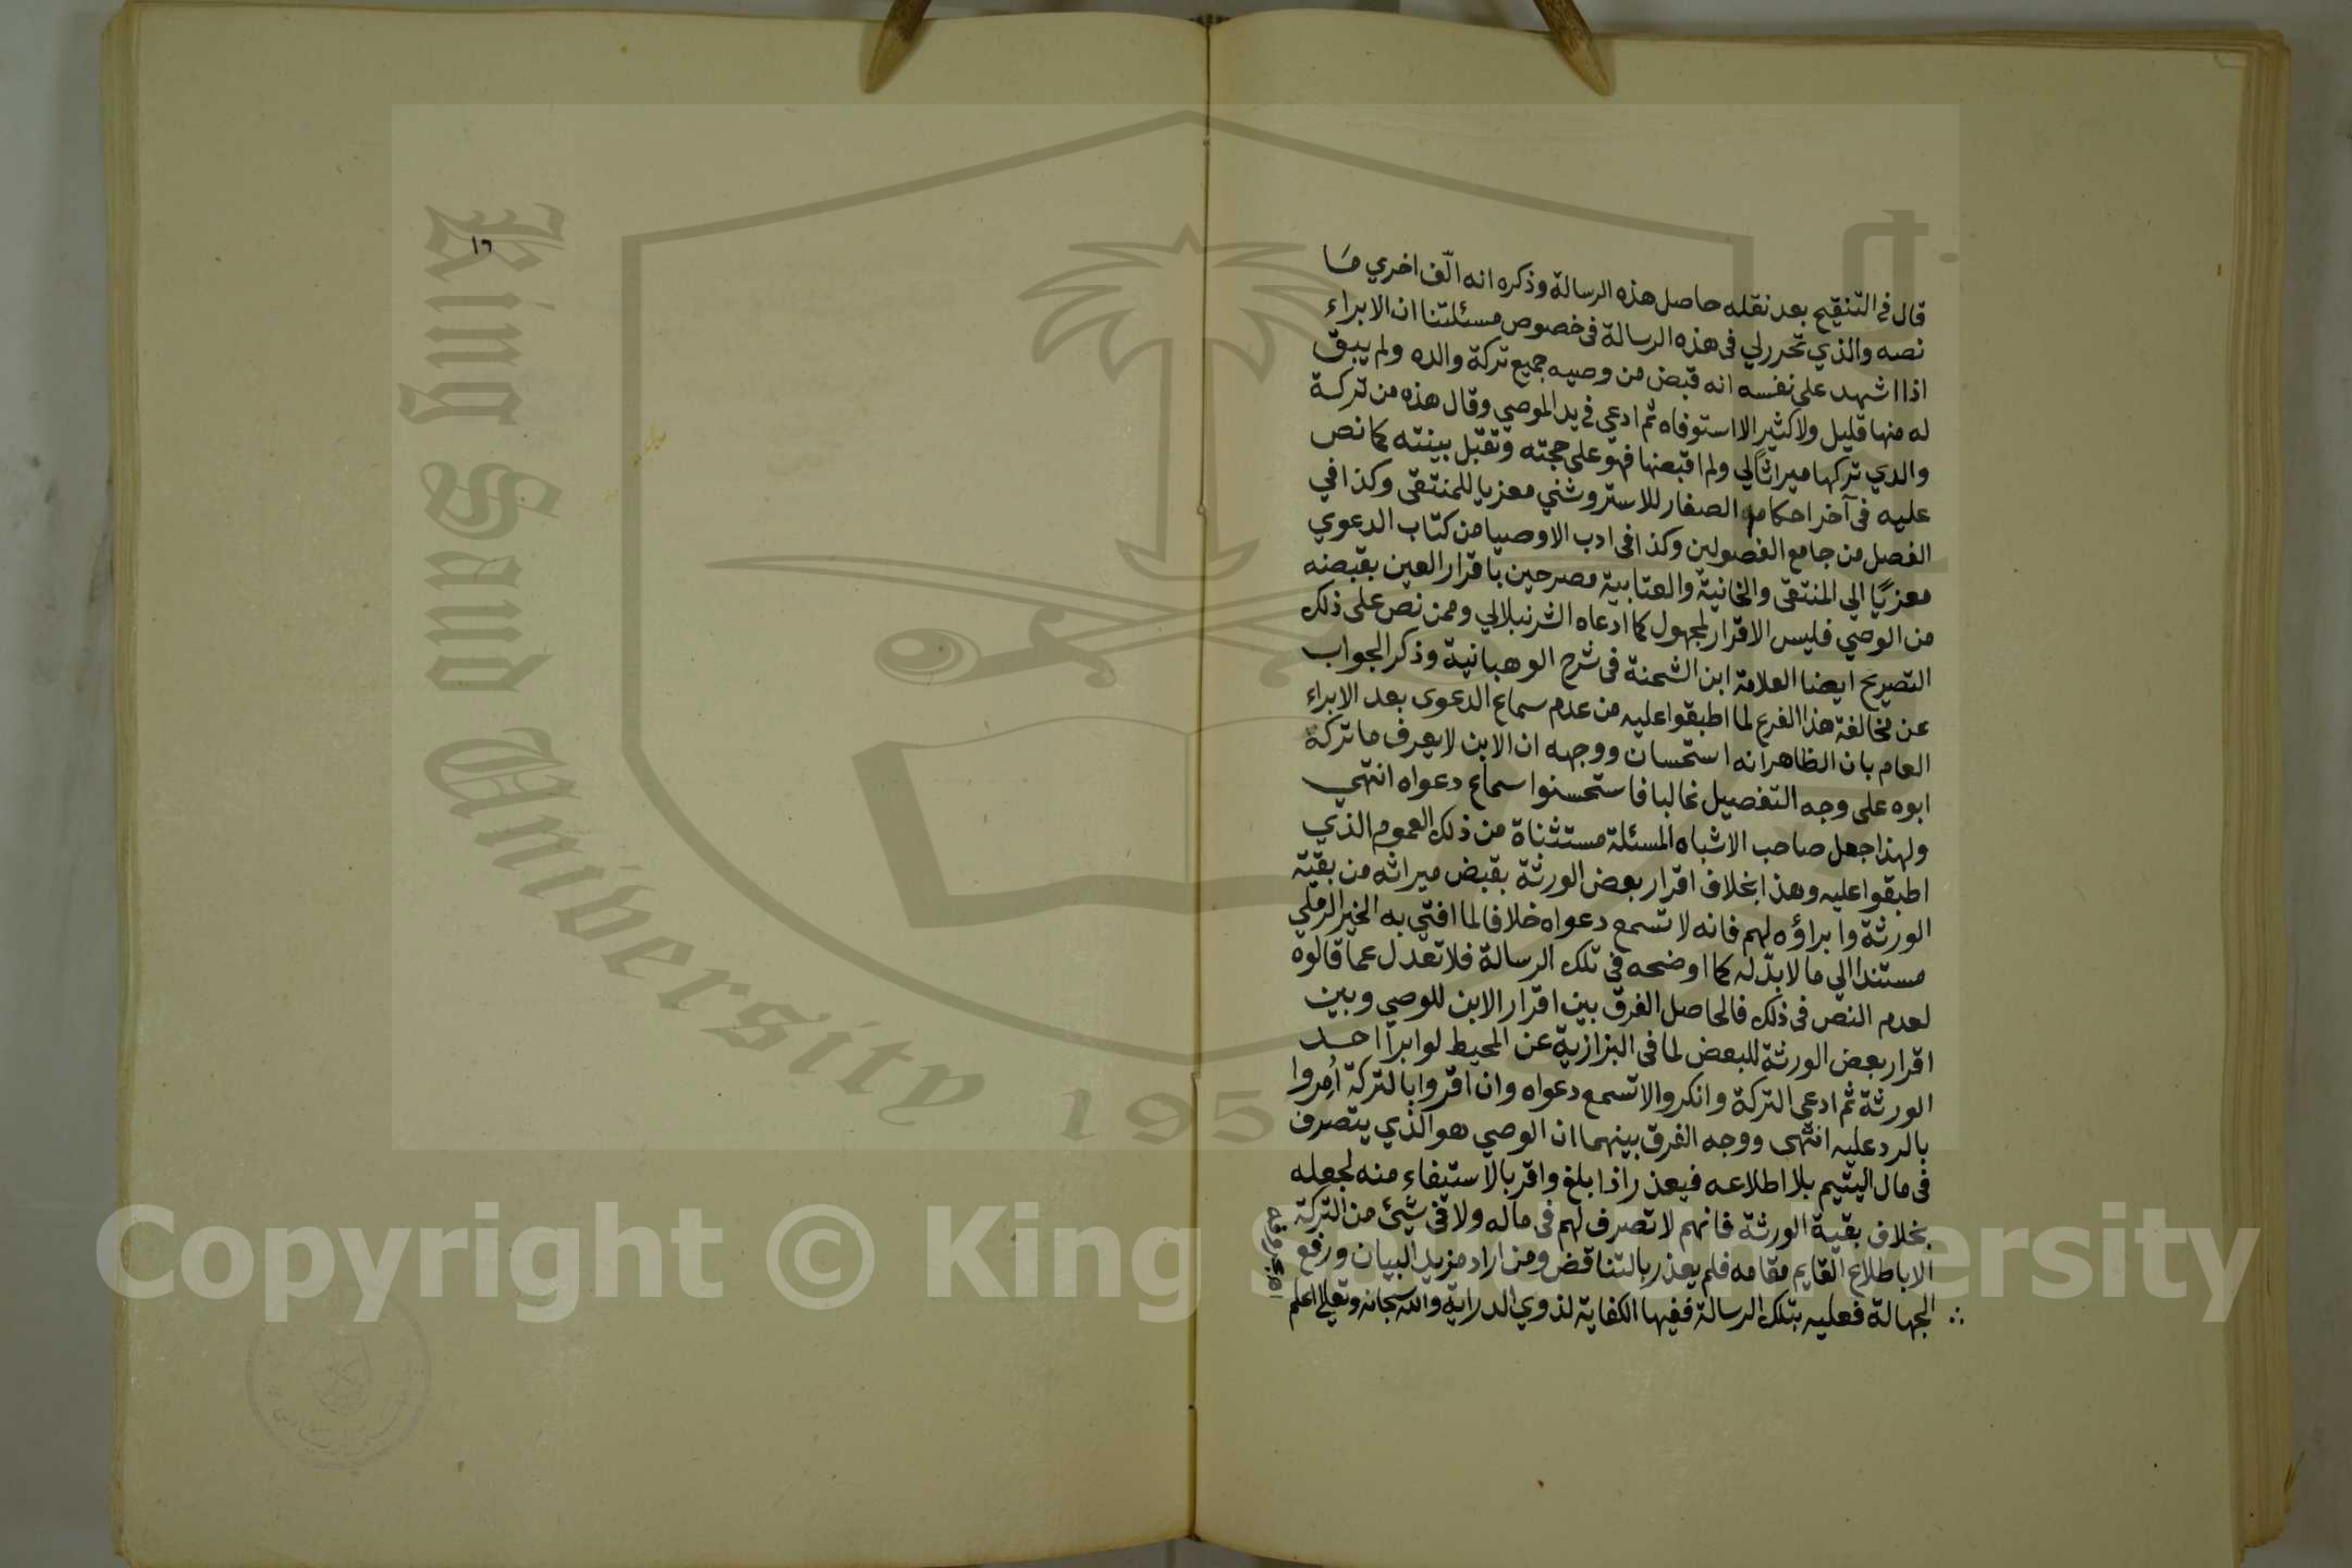 قال في التنقيح بعد نقله حاصل هذه الرسالة وذكره انه الّف اخري مَا
نصه والذي تحرر لي في هذه الرسالة في خصوص مسئلتنا ان الابراء
اذا اشهد على نفسه انه قبض من وصيه جميع تركة والده ولم يبق
له منها قليل ولا كثير الا استوفاه ثم ادعي في يد الموصي وقال هذه من تركة
والدي تركها ميراثًا لي ولم اقبضها فهو على حجته وتقبل بينته كما نص
عليه في آخر احكام الصغار للاستروشني معزيا للمنتقى وكذا في
الفصل من جامع الفصولين وكذا في ادب الاوصيا من كتاب الدعوي
معزيًا الي المنتقى والخانية والعتابية مصرحين باقرار العين بقبضه
من الوصي فليس الاقرار لمجهول كما ادعاه الشرنبلالي وممن نص على ذلك
التصريح ايضا العلامة ابن الشحنة في شرح الوهبانية وذكر الجواب
عن مخالفة هذا الفرع لما اطبقوا عليه من عدم سماع الدعوى بعد الابراء
العام بان الظاهر انه استحسان ووجهه ان الابن لا يعرف ما تركه
ابوه على وجه التفصيل غالبا فاستحسنوا سماع دعواه انتهي
ولهذا جعل صاحب الاشباه المسئلة مستثناة من ذلك العموم الذي
اطبقوا عليه وهذا بخلاف اقرار بعض الورثة بقبض ميراثه من بقية
الورثة وابراؤه لهم فانه لا تسمع دعواه خلافا لما افتي به الخير الرملي
مستندا الي ما لا يدّل له كما اوضحه في تلك الرسالة فلا تعدل عما قالوه
لعدم النص في ذلك فالحاصل الفرق بين اقرار الابن للوصي وبين
اقرار بعض الورثة للبعض لما في البزازية عن المحيط لو ابرأ احد
الورثة ثم ادعي التركة وانكروا لا تسمع دعواه وان اقروا بالتركة اُمروا
بالرد عليه انتهى ووجه الفرق بينهما ان الوصي هو الذي يتصرف
في مال اليتيم بلا اطلاعه فيعذر اذا بلغ واقر بالاستيفاء منه لجهله
بخلاف بقية الورثة فانهم لا تصرف لهم في ماله ولا في شيئ من التركة
الا باطلاع القايم مقامه فلم يعذر بالتناقض ومن اراد مزيد البيان ورفع
الجهالة فعليه بتلك الرسالة ففيها الكفاية لذوي الدراية والله سبحانه وتعالى اعلم
١٦
King Saud University
195
Copyright © King Saud University